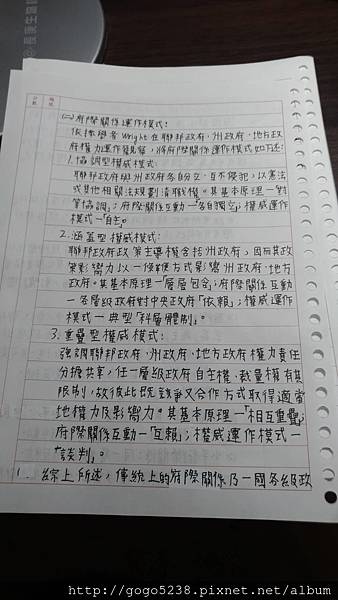 (二)府際關係運作模式:
依據學者Wright在聯邦政府、州政府、地方政
府權力運作發現當,將府際關係運作模式如下述:
1.協調型權威模式:
聯邦政府與州政府各自分立、互不侵犯,以憲法
或其他相關法規劃清職權。其基本原理—「對
等協調」;府際關係互動—「各自獨立」;權威運作
模式—「自主」。
2.涵蓋型權威模式:
聯邦政府政策主導權含括州政府,因而其政
策影響力以一條鞭方式影響州政府、地方
政府。其基本原理—「層層包含」;府際關係互動
—各層級政府對中央政府「依賴」;權威運作
模式—典型「科層體制」。
3.重疊型權威模式:
強調聯邦政府、州政府、地方政府權力責任
分擔共享,任一層級政府自主權、裁量權有其
限制,故彼此既競爭又合作方式取得適當
地權力及影響力。其基本原理—「相互重疊」;
府際關係互動—「互賴」;權威運作模式—
「談判」。
綜上所述,傳統上的府際關係乃一國各級政
http://gogo5238.pixnet.net/album